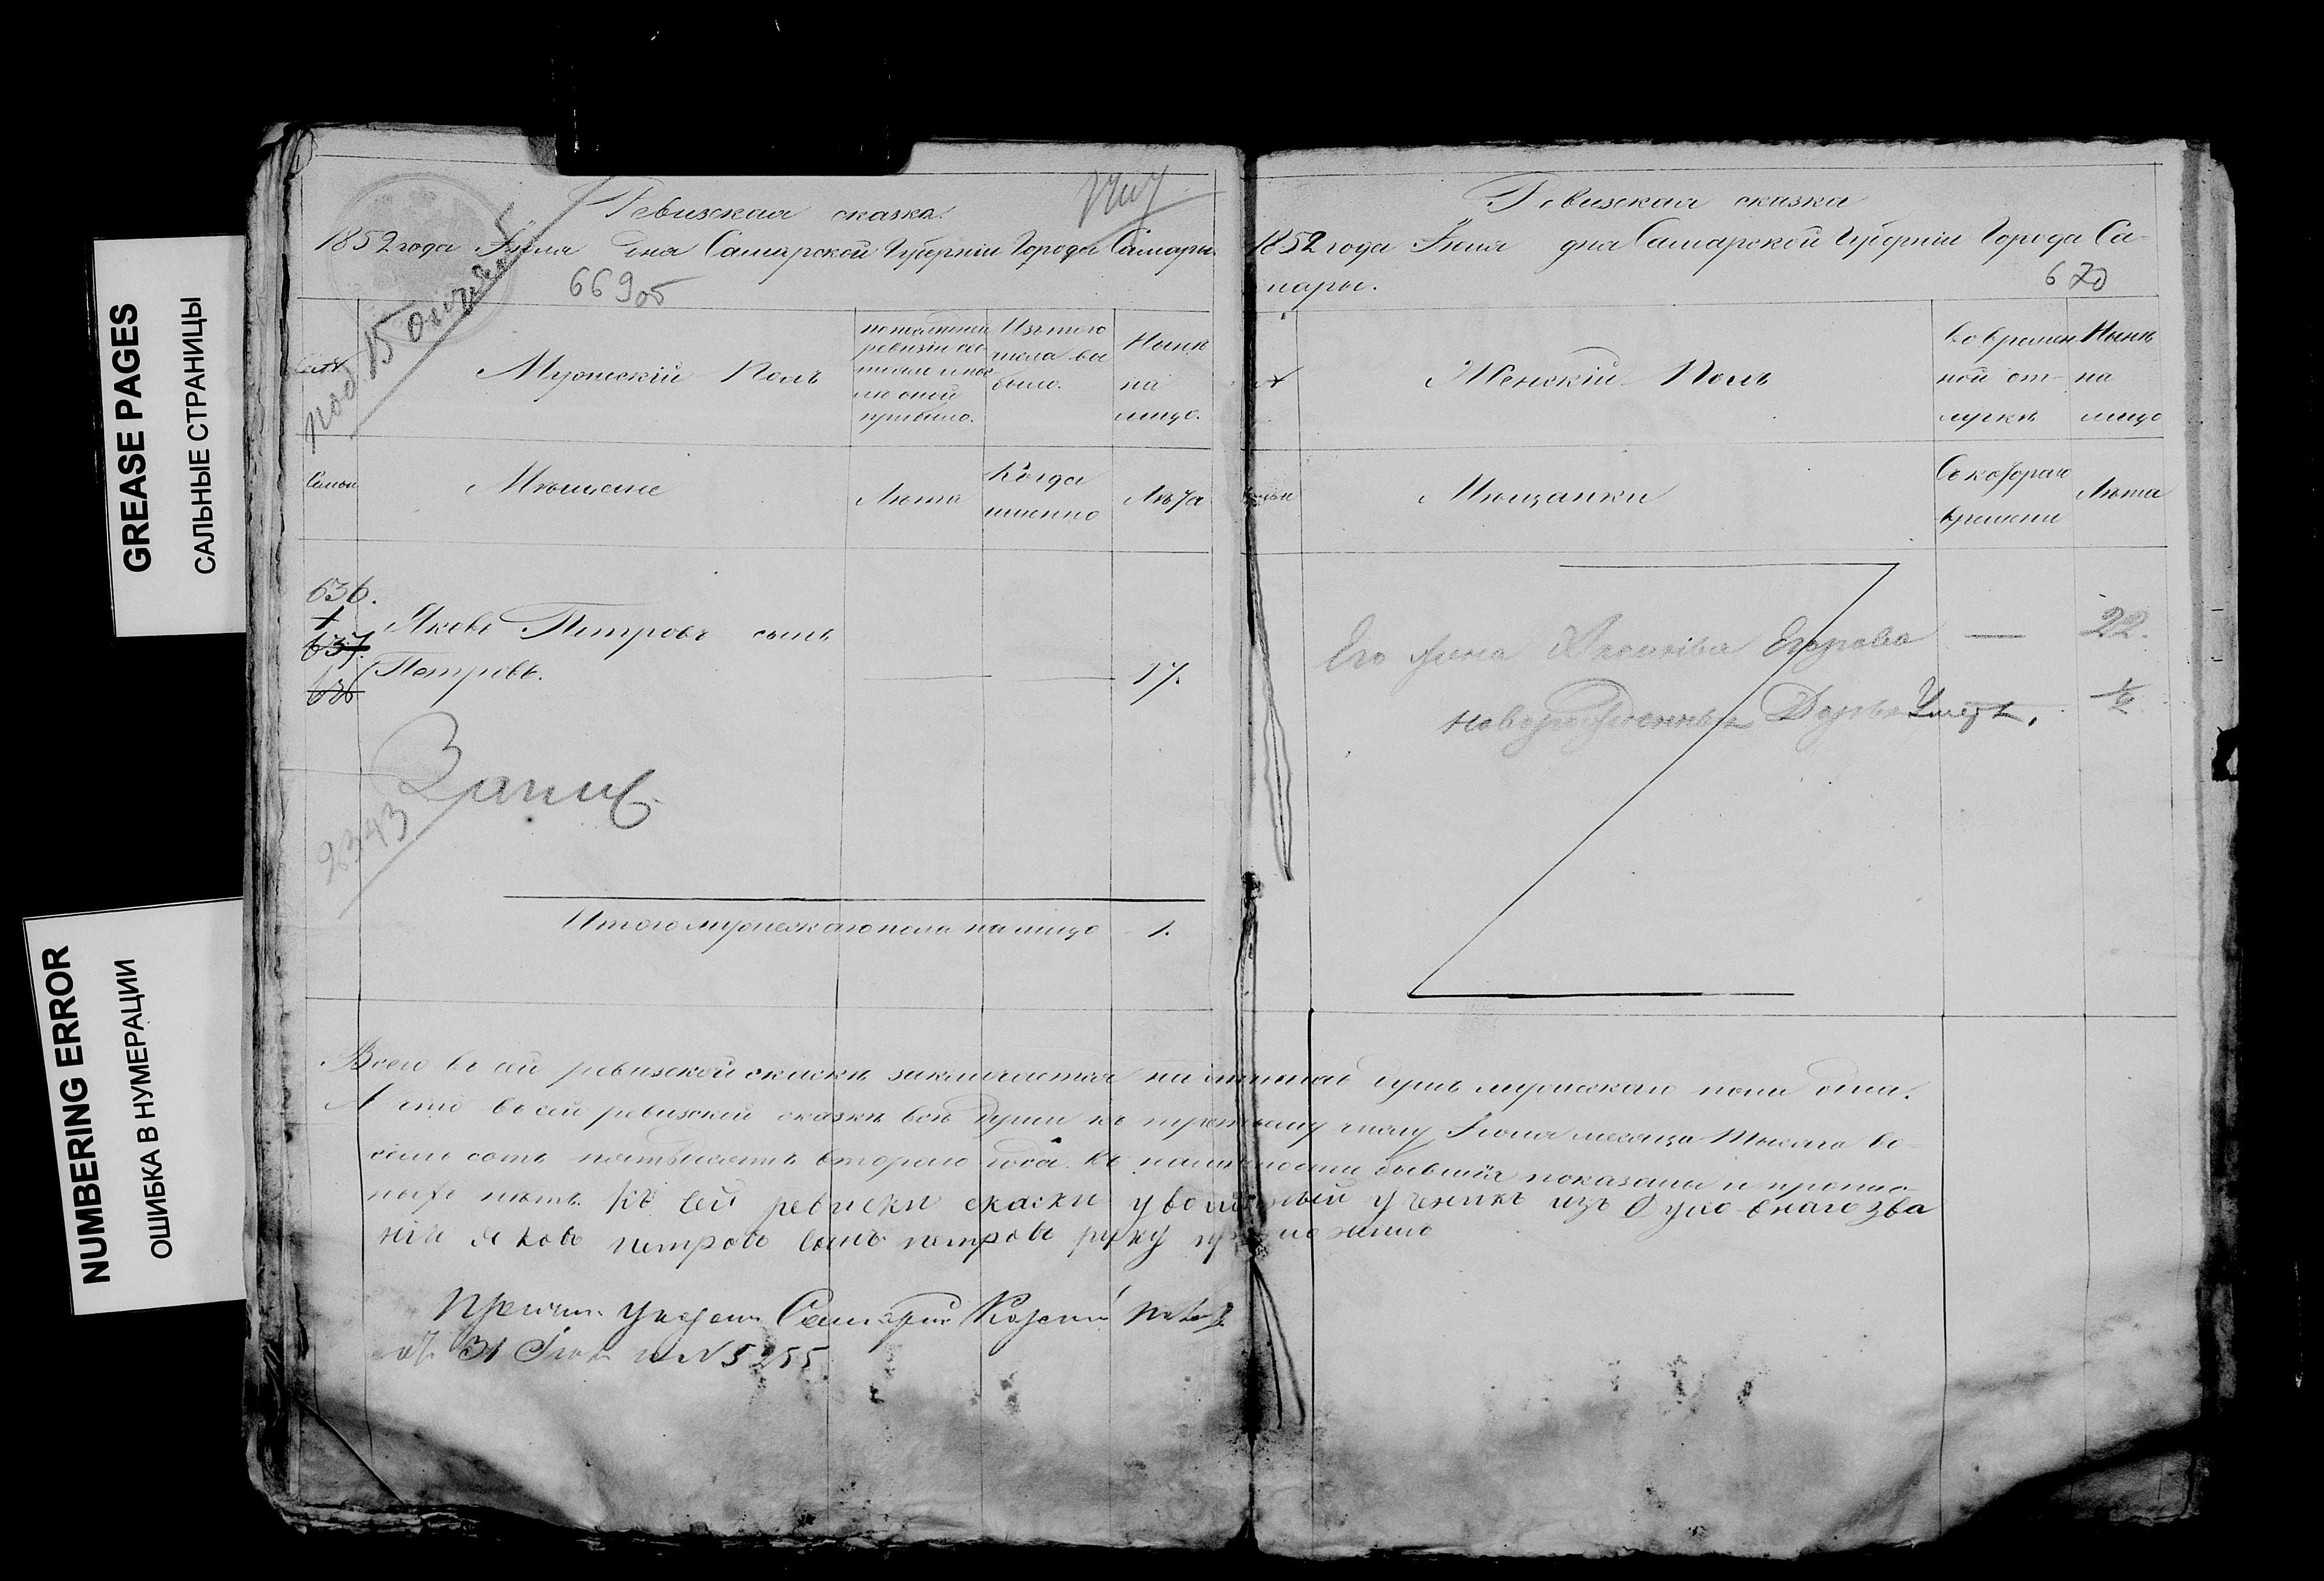 GREASE PAGES
САЛЬНЫЕ СТРАНИЦЫ
NUMBERING ERROR
ОШИБКА В НУМЕРАЦИИ
Ревизская сказка.
1852 года Июня дня Самарской Губерніи Города Самары.
669 об
под 15
Мужескій Полъ
Изъ того числа выбыло.
Нынѣ на лицо.
Семьи
Мѣщане
Лѣта
Когда именно
Лѣта
636.
637.
Яковъ Петровъ сынъ
Петровъ.
17.
2343
Итого мужескаго пола на лицо 1.
Ревизская сказка
1852 года Июня дня Самарской Губерніи Города Са-
мары.
670
Женскій Полъ
Во времен
ной от-
лучкѣ
Нынѣ
на
лицо
Мещанки
Съ котораго
времени
Лѣта
Его жена Егорова — 22.
новорожденный Умеръ.
Всего въ сей ревизской сказкѣ заключается на лицо душъ мужескаго пола одна.
А что въ сей ревизской сказкѣ всѣ души къ третьему числу Июня месяца Тысяча во-
семь сотъ пятьдесятъ втораго года въ наличности бывшія показаны и пропис-
ныхъ нѣтъ. Къ сей ревиски скаски уволиный ученикъ изъ духовнаго зва
нія Яковъ петровъ сынъ петровъ руку приложилъ
31 № 5255